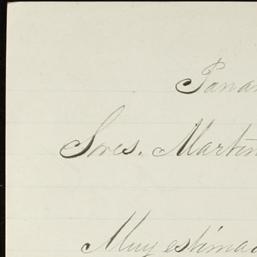 Panam
Sres. Martin
Muy estimad